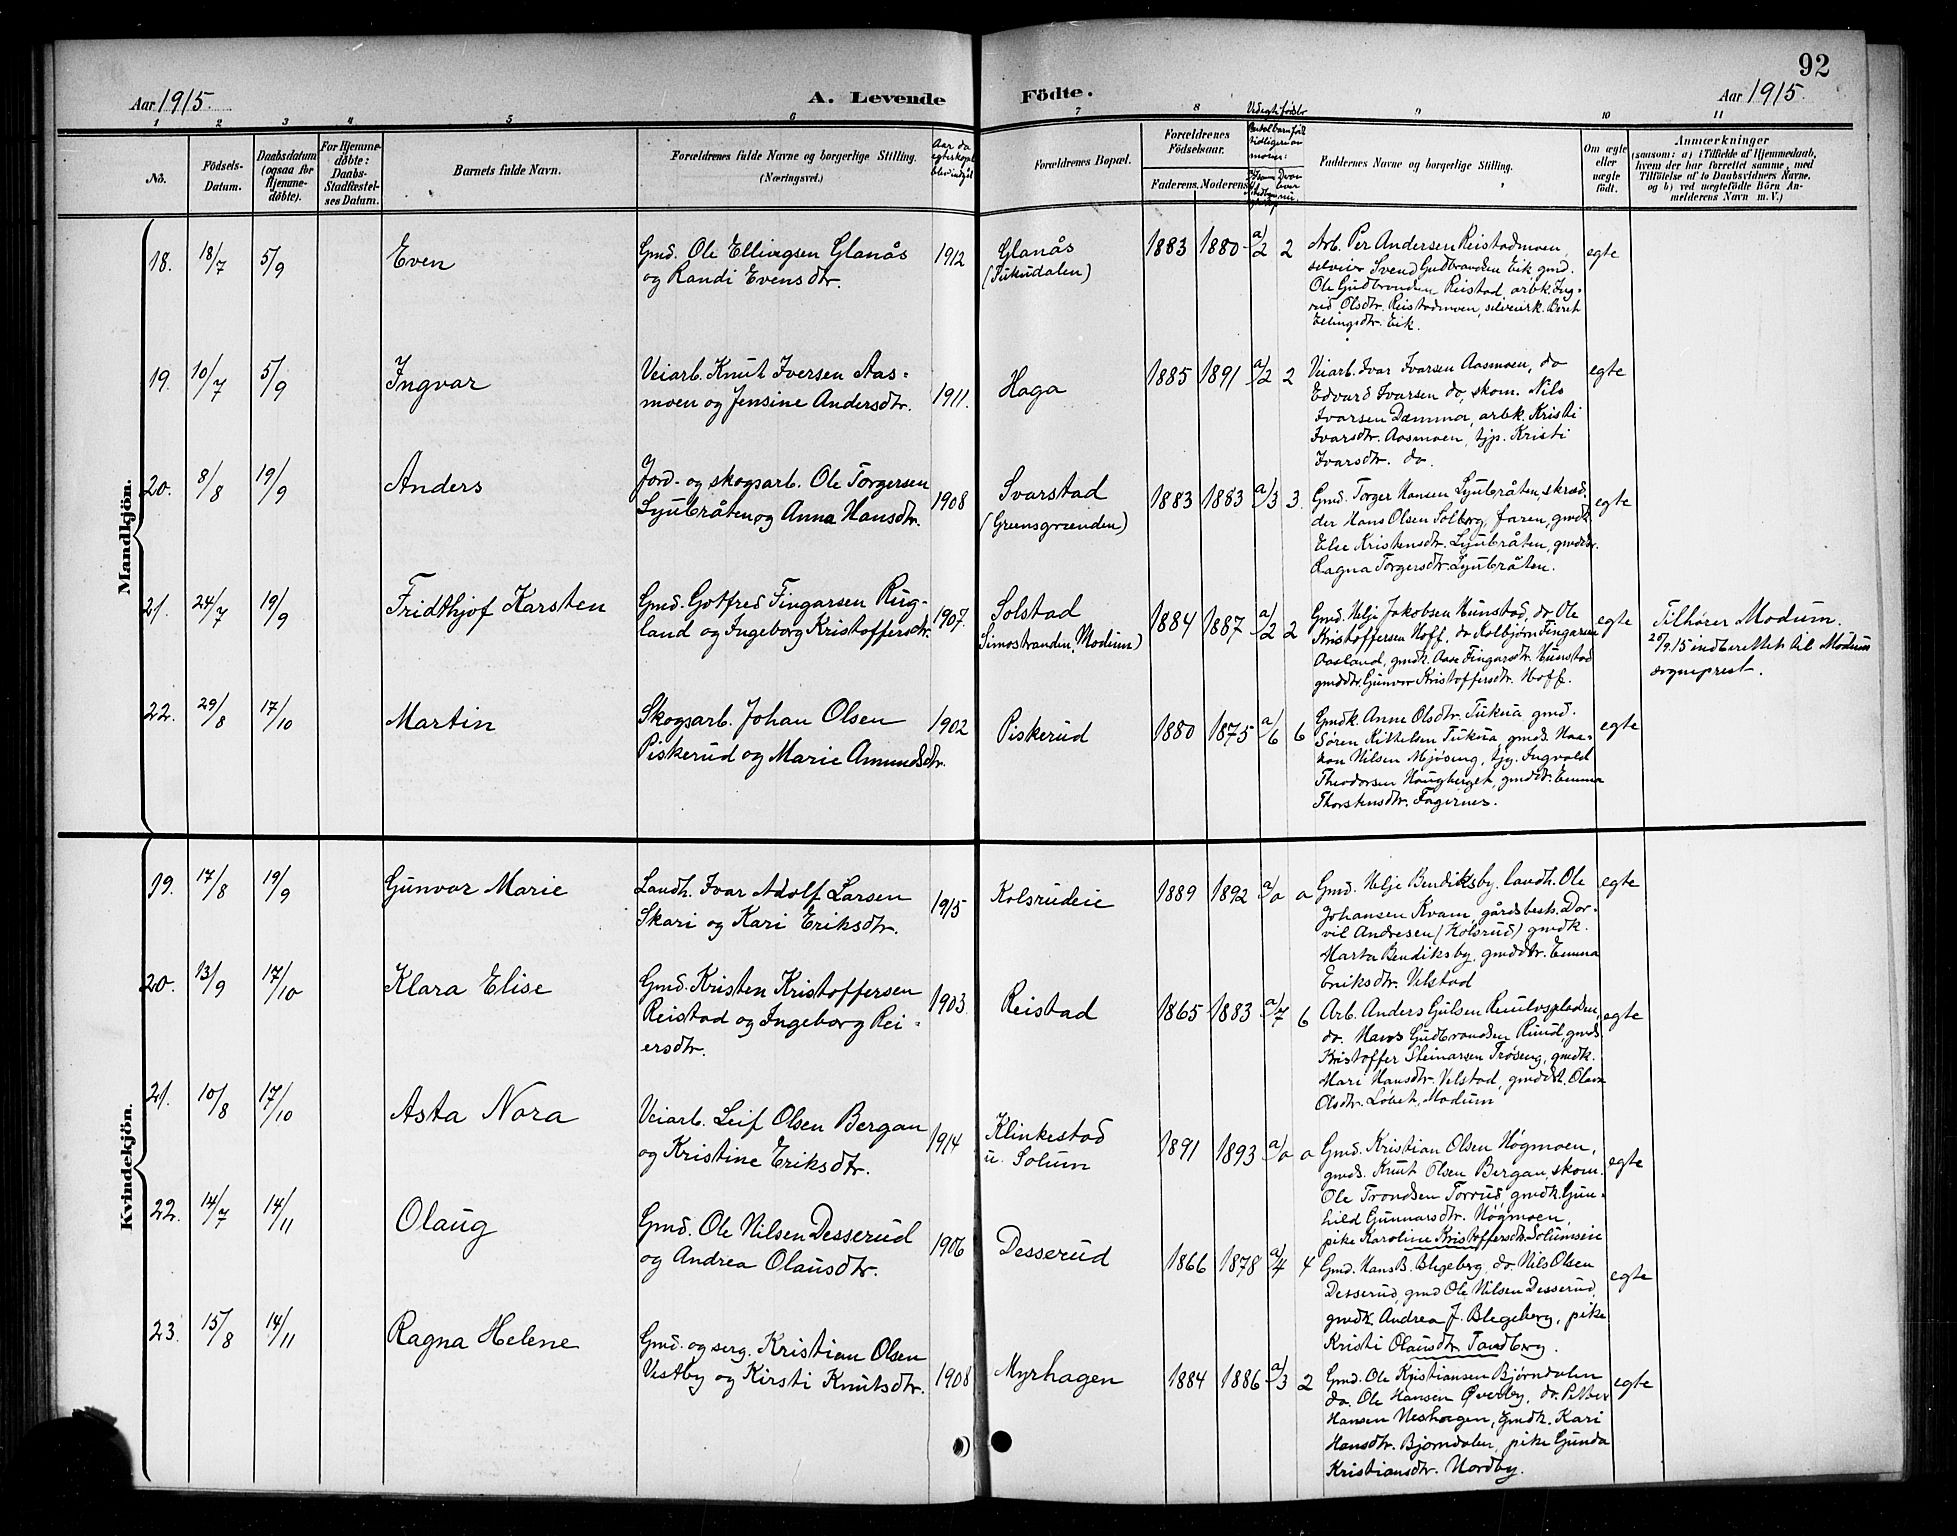 92
Aar 1915.
A. Levende
Födte.
Aar 1915.
1 2 3 4 5 6 7 8 9 10 11
No.
Födsels-
Datum.
Daabsdatum
(ogsaa for
Hjemme-
døbte).
For Hjemme-
döbte:
Daabs-
Stadfæstel-
ses Datum.
Barnets fulde Navn.
Forældrenes fulde Navne og borgerlige Stilling.
(Næringsvei.)
Aar da
Forældrenes Bopæl.
Forældrenes
Födselsaar.
Faderens. Moderens.
Faddernes Navne og borgerlige Stilling.
Om ægte
eller
uægte
født.
Anmærkninger
(saasom: a) i Tilfælde af Hjemmedaab,
hvem der har forrettet samme, med
Tilföielse af to Daabsvidners Navne,
og b) ved uegtefödte Börn An-
melderens Navn m. V.)
Mandkjön.
18. 18/7 5/9 Even
Gmd. Ole Ellingsen Glanås
og Randi Evensdtr.
1912
Glanås
1883 1880 a/2 2
Arb. Per Andersen Reistadmoen,
Svend Gudbrandsen Eik gmd.
Ole Gudbrandsen Reistad, arbk. Ing-
rid Olsdtr. Reistadmoen, Berit
Ellingsdtr. Eik.
egte
19. 10/7 5/9 Ingvar
Veiarb. Knut Iversen Aas-
moen og Jensine Andersdtr.
1911.
Haga
1885 1891 a/2 2
Veiarb. Ivar Ivarsen Aasmoen, do
Edvard Ivarsen do, skom. Nils
Ivarsen Dæmma, arbk. Kristi
Ivarsdtr. Aasmoen, tjp. Kristi
Ivarsdtr. do.
egte
20. 8/8 19/9 Anders
Jord- og skogsarb. Ole Torgersen
Ljubråten og Anna Hansdtr.
1908
Svarstad
(Greensgrænden)
1883 1883 a/3 3.
Gmd. Torger Hansen Ljubråten, skræd-
der Hans Olsen Solberg, faren, gmdk.
Else Kristensdtr. Ljubråten, gmddtr.
Ragna Torgersdtr. Ljubråten.
egte
21. 24/7 19/9 Fridthjof Karsten
Gmd. Gotfred Fingarsen Rug-
land og Ingeborg Kristoffersdtr.
1907.
Solstad
(Simostranden, Modum)
1884 1887 a/2 2
Gmd. Helje Jakobsen Hunstad, do Ole
Kristoffersen Hoff, do Kolbjørn Fingarsen
Aasland, gmdk. Aase Fingarsdtr. Hunstad
gmddtr. Gunvor Kristoffersdtr. Hoff.
egte
Tilhører Modum.
20/9.15 indberettet til Modum
sogneprest.
22. 29/8 17/10 Martin
Skogsarb. Johan Olsen
Piskerud og Marie Amundsdtr.
1902
Piskerud
1880 1875 a/6 6
Gmdk Anne Olsdtr. Tukua gmd.
Søren Kittelsen Tukua, gmds. Haa-
kon Nilsen Mjøseng, tjg. Ingvald
Theodorsen Haugberget, gmddtr. Emma
Thorstensdtr. Fagernes.
egte
Kvindekjön.
19. 17/8 19/9 Gunvor Marie
Landh. Ivar Adolf Larsen
Skari og Kari Eriksdtr.
1915
Kolsrudeie
1889 1892 a/0 0
Gmd. Helje Bendiksby, landh. Ole
Johansen Kvam, gårdsbest. Dor-
vil Andresen (Kolsrud) gmdk.
Marta Bendiksby, gmddtr. Emma
Eriksdtr. Velstad
egte
20. 13/9 17/10 Klara Elise
Gmd. Kristen Kristoffersen
Reistad og Ingeborg Rei-
ersdtr.
1903
Reistad
1865 1883 a/7 6
Arb. Anders Gulsen
do. Hans Gudbrandsen Ruud, gmds.
Kristoffer Steinarsen Trøseng, gmdk.
Mari Hansdtr. Velstad, gmddt. Olava
Olsdtr. Løbet, Modum
egte
21. 10/8 17/10 Asta Nora
Veiarb. Leif Olsen Bergan
og Kristine Eriksdtr.
1914
Klinkestad
u. Solum
1891 1893 a/0 0
Gmd. Kristian Olsen Høgmoen,
gmds. Knut Olsen Bergan, skom.
Ole Trondsen Torrud, gmdk. Gun-
hild Gunnarsdtr. Høgmoen,
pike Karoline Kristoffersdtr. Solumseie
egte
22. 14/7 14/11 Olaug
Gmd. Ole Nilsen Desserud
og Andrea Olausdtr.
1906
Desserud
1866 1878 a/4 4
Gmd. Hans B. Blegeberg, do Nils Olsen
Desserud, gmd Ole Nilsen Desserud,
gmdk. Andrea J. Blegeberg, pike
Kristi Olausdtr. Tandberg.
egte
23. 15/8 14/11 Ragna Helene
Gmd. og serg. Kristian Olsen
Vestby og Kirsti Knutsdtr.
1908
Myrhagen
1884 1886 a/3 2
Gmd. Ole Kristiansen Bjørndalen
do. Ole Hansen Øverby, do. Petter
Hansen Neshagen, gmdk. Kari
Hansdtr. Bjørndalen, pike Gunda
Kristiansdtr. Nordby.
egte